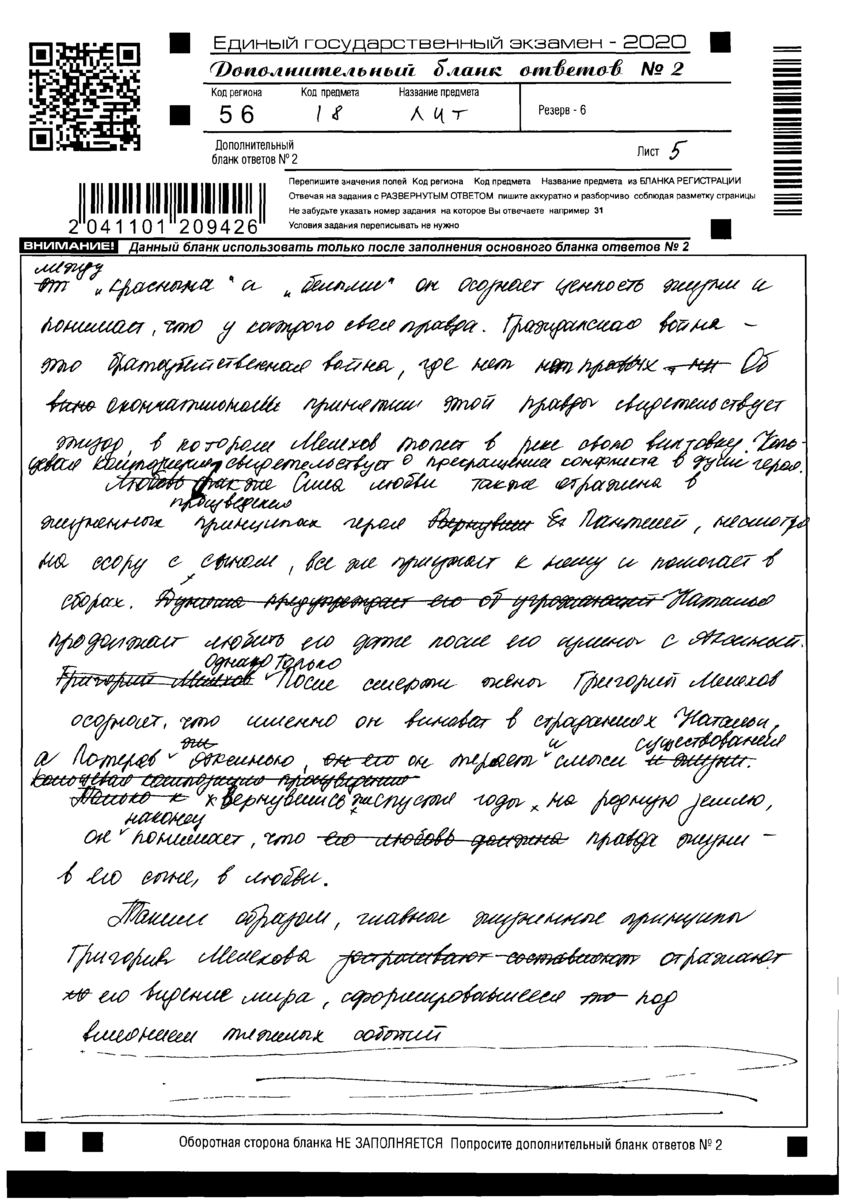 Единый государственный экзамен - 2020
Дополнительный бланк ответов № 2
Код региона Код предмета Название предмета
56 18 ЛИТ
Резерв - 6
Дополнительный
бланк ответов № 2
Лист 5
Перепишите значения полей Код региона Код предмета Название предмета из БЛАНКА РЕГИСТРАЦИИ
Отвечая на задания с РАЗВЕРНУТЫМ ОТВЕТОМ пишите аккуратно и разборчиво соблюдая разметку страницы
Не забудьте указать номер задания на которое Вы отвечаете например 31
Условия задания переписывать не нужно
2 041101 209426
ВНИМАНИЕ! Данный бланк использовать только после заполнения основного бланка ответов № 2
между
от „красными" и „белыми" он осознает ценность жизни и
понимает, что у каждого своя правда. Гражданская война –
это братоубийственная война, где нет правых ни Об
окончательном принятии этой правды свидетельствует
эпизод, в котором Мелехов топит в реке свою винтовку. Коль-
цевая композиция свидетельствует о прекращении конфликта в душе героя.
Любовь также Сила любви также отражена в
произведения
жизненных принципах героя Вернувши Пантелей, несмотря
на ссору с сыном, все же приезжает к нему и помогает в
сборах. Дуняша предупреждает его об угрожающей Наталья
продолжает любить его даже после его измены с Аксиньей.
Однако только
Григорий Мелехов После смерти жены Григорий Мелехов
осознает, что именно он виноват в страданиях Натальи,
а Потеряв Аксинью, он его он теряет и смысл существования и жизни.
кольцевая композиция произведения
Только к Вернувшись спустя годы на родную землю,
наконец
он понимает, что его любовь должна правда жизни –
в его сыне, в любви.
Таким образом, главные жизненные принципы
Григория Мелехова составляют отражают
его видение мира, сформировавшееся под
влиянием тяжелых событий
Оборотная сторона бланка НЕ ЗАПОЛНЯЕТСЯ Попросите дополнительный бланк ответов № 2